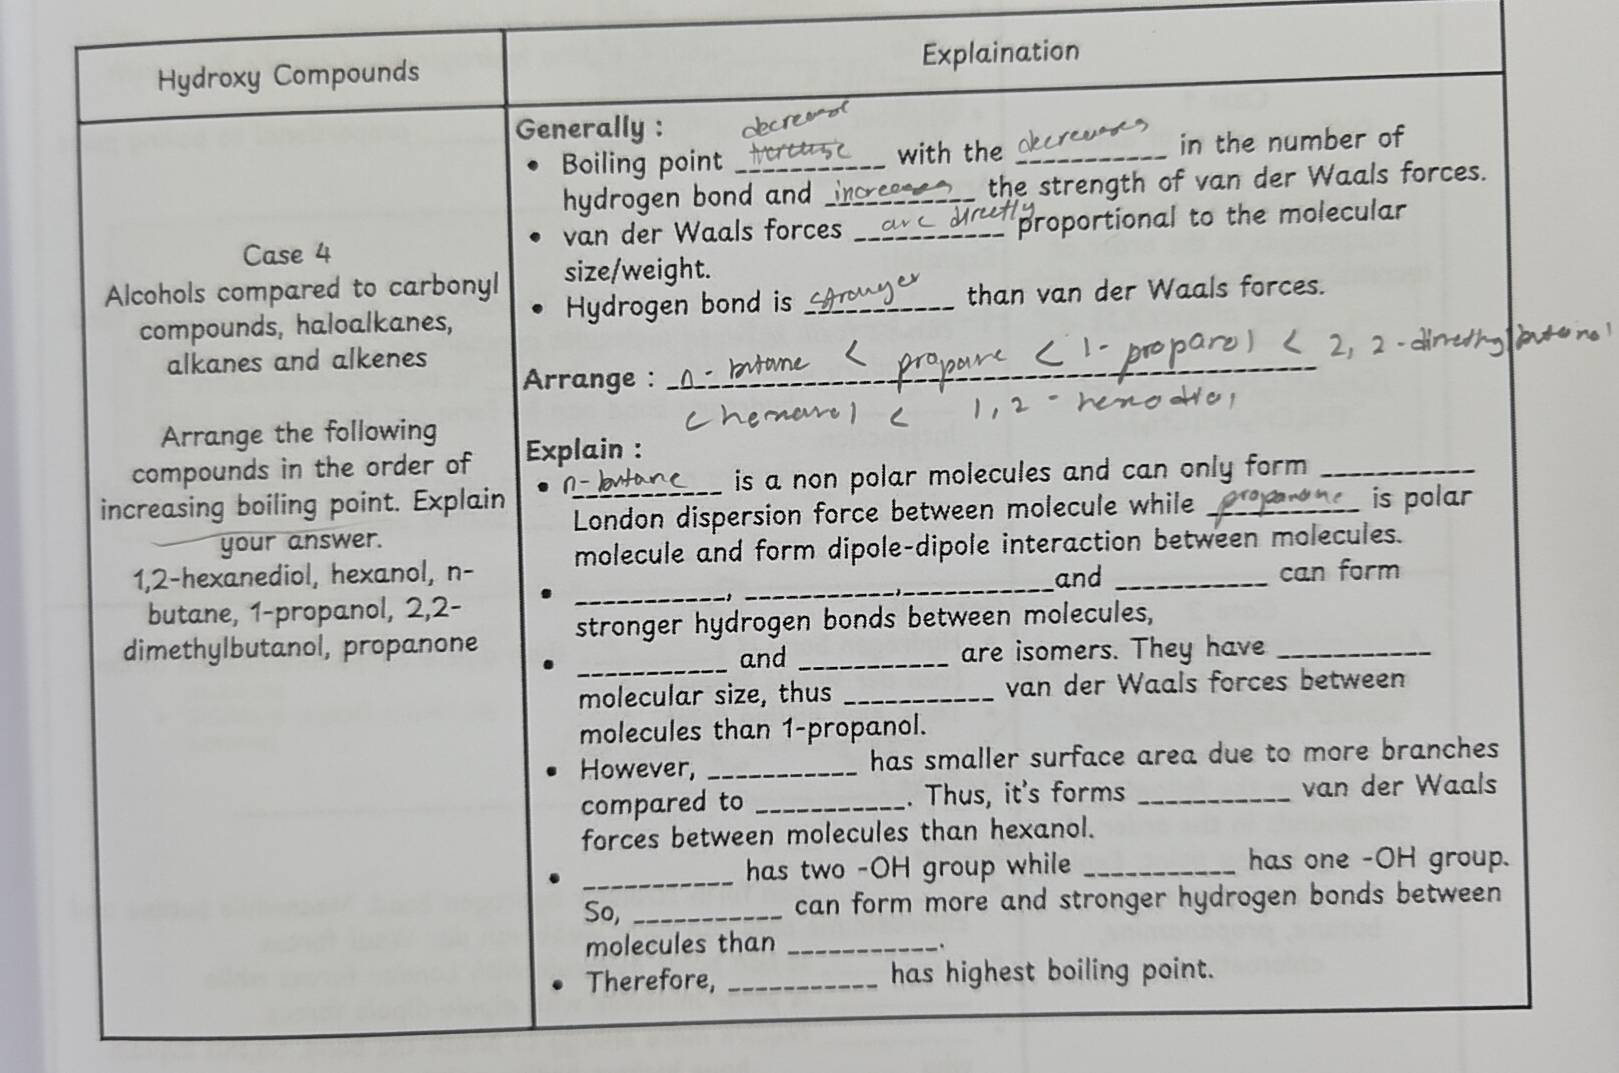 Hydroxy Compounds
Explaination
Case 4
Alcohols compared to carbonyl
compounds, haloalkanes,
alkanes and alkenes
Arrange the following
compounds in the order of
increasing boiling point. Explain
your answer.
1,2-hexanediol, hexanol, n-
butane, 1-propanol, 2,2-
dimethylbutanol, propanone
Generally :
• Boiling point ___________ with the decreases in the number of
hydrogen bond and increases the strength of van der Waals forces.
• van der Waals forces are directly proportional to the molecular
size/weight.
• Hydrogen bond is stronger than van der Waals forces.
Arrange : n-butane < < 1-propanol < 2, 2-
< <  1,2-
Explain :
• n-butane is a non polar molecules and can only form ___________
London dispersion force between molecule while propanone is polar
molecule and form dipole-dipole interaction between molecules.
• ___________, ___________,___________and ___________ can form
stronger hydrogen bonds between molecules,
• ___________ and ___________ are isomers. They have ___________
molecular size, thus ___________ van der Waals forces between
molecules than 1-propanol.
• However, ___________ has smaller surface area due to more branches
compared to ___________. Thus, it's forms ___________ van der Waals
forces between molecules than hexanol.
• ___________ has two -OH group while ___________ has one -OH group.
So, ___________ can form more and stronger hydrogen bonds between
molecules than ___________.
• Therefore, ___________ has highest boiling point.